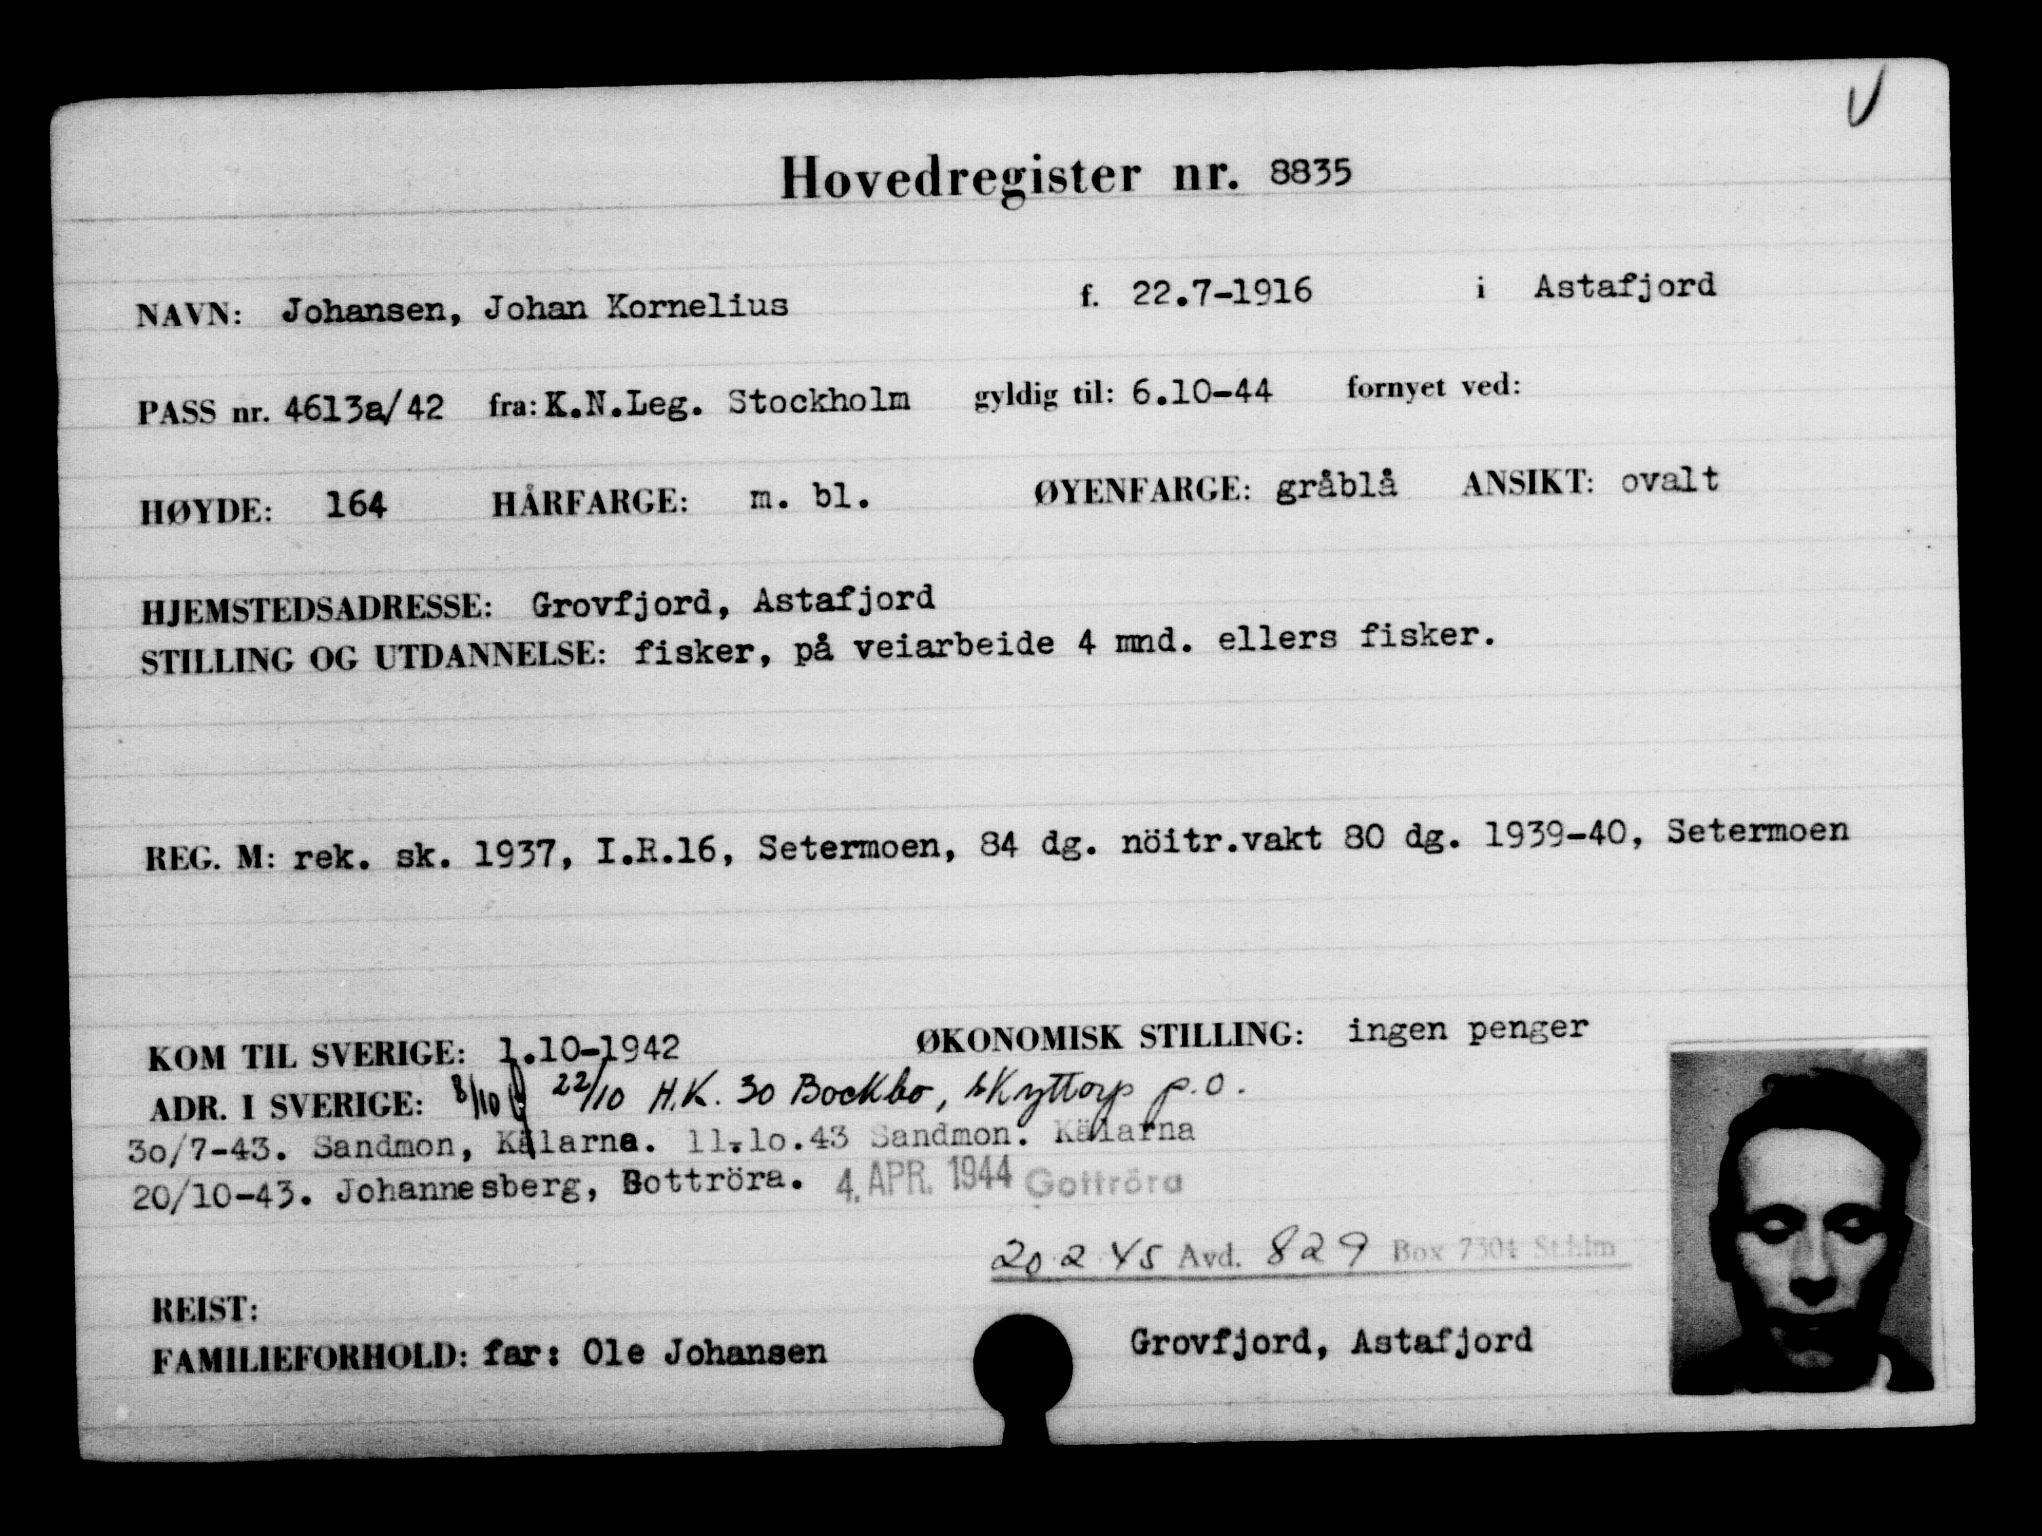 Hovedregister nr. 8835
NAVN: Johansen, Johan Kornelius f. 22.7-1916 i Astafjord
PASS nr. 4613a/42 fra: K.N.Leg. Stockholm gyldig til: 6.10-44 fornyet ved:
HØYDE: 164 HÅRFARGE: m. bl. ØYENFARGE: gråblå ANSIKT: ovalt
HJEMSTEDSADRESSE: Grovfjord, Astafjord
STILLING OG UTDANNELSE: fisker, på veiarbeide 4 mnd. ellers fisker.
REG. M: rek. sk. 1937, I.R.16, Setermoen, 84 dg. nöitr.vakt 80 dg. 1939-40, Setermoen
KOM TIL SVERIGE: 1.10-1942 ØKONOMISK STILLING: ingen penger
ADR. I SVERIGE: 8/10 22/10 H.K. 30 Bockbo, Skyttorp p.o.
3o/7-43. Sandmon, Kälarne. 11.1o.43 Sandmon. Kälarna
20/10-43. Johannesberg, Gottröra. 4. APR. 1944 Gottröra
20 2 45 Avd. 829 Box 7301 St.hlm
REIST:
FAMILIEFORHOLD: far: Ole Johansen Grovfjord, Astafjord